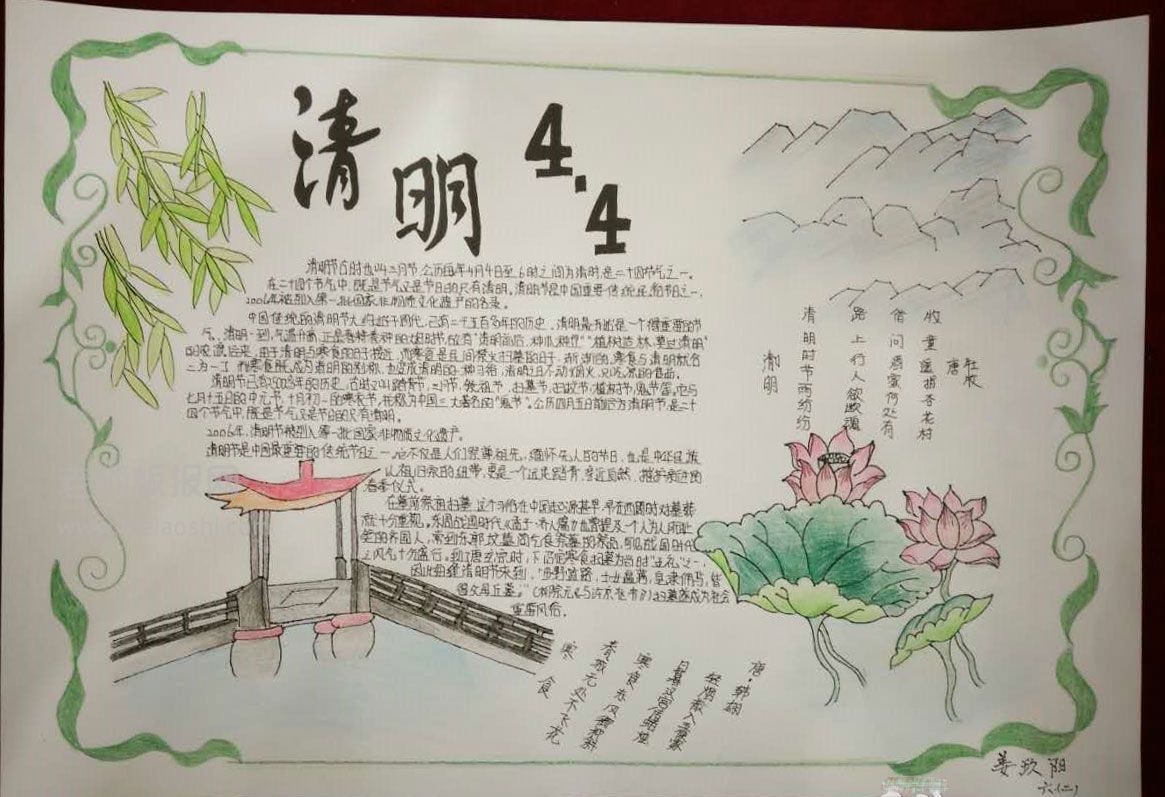 清明
4.4
清明节古时也叫三月节,公历每年4月4日至6时之间为清明,是二十四节气之一。
在二十四个节气中,既是节气又是节日的只有清明。清明节是中国重要传统民俗节日之一,
2006年被列入第一批国家非物质文化遗产的名录。
中国传统的清明节大约始于周代,已有二千五百多年的历史。清明最开始是一个很重要的节
气,清明一到,气温升高,正是春耕春种的
故有"清明前后,种瓜种豆""植树造林,莫过清明"
的农谚。后来,由于清明与寒食的日子接近,而寒食是民间禁火扫墓的日子,渐渐的,寒食与清明就合
二为一了,
清明节已有2500多年的历史,古时又叫踏青节、三月节、祭祖节、扫墓节、扫坟节、植树节、鬼节等。它与
七月十五日的中元节、十月初一的寒衣节,并称为中国三大著名的"鬼节"。公历四月五日前后为清明节,是二十
四个节气中,既是节气又是节日的只有清明。
2006年,清明节被列入第一批国家非物质文化遗产。
清明节是中国最重要的传统节日之一。它不仅是人们祭奠祖先,缅怀先人的节日,也是中华民族
认祖归宗的纽带,更是一个远足踏青、亲近自然、拥护新生的
春季仪式。
在墓前祭祖扫墓,这个习俗在中国起源甚早。早在西周时对墓葬
就十分重视。东周战国时代《孟子·齐人篇》也曾提及一个人为人所耻
笑的齐国人,常到东郭坟墓同乞食祭墓的祭品,可见战国时代
之风气十分盛行。到了唐玄宗时,下诏定寒食扫墓为当时"五礼"之一,
因此每逢清明节来到,"田野道路,士女遍满,皂隶佣丐,皆
得父母丘墓。"(柳宗元《与许京兆书》)扫墓遂成为社会
重要风俗。
清明
唐
杜牧
清明时节雨纷纷
路上行人欲断魂
借问酒家何处有
牧童遥指杏花村
寒食
唐·韩翃
春城无处不飞花
寒食东风御柳斜
日暮汉宫传蜡烛
轻烟散入五侯家
姜玖阳
六(二)